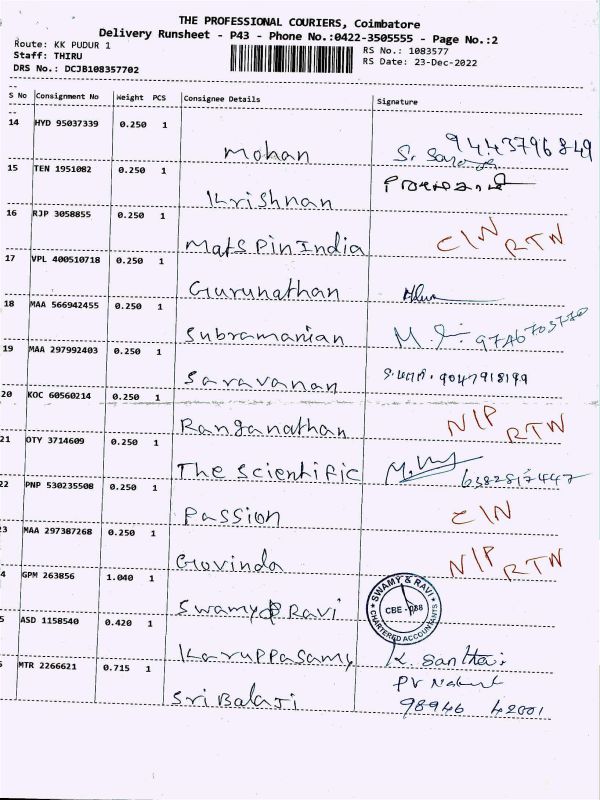 THE PROFESSIONAL COURIERS, Coimbatore
Delivery Runsheet - P43 - Phone No.:0422-3505555 - Page No.:2
Route: KK PUDUR 1
RS No.: 1083577
Staff: THIRU
RS Date: 23-Dec-2022
DRS No.: DCJB108357702
S No Consignment No Weight PCS Consignee Details Signature
14 HYD 95037339 0.250 1 Mohan 9443796849
15 TEN 1951082 0.250 1 Krishnan
16 RJP 3058855 0.250 1 Mats Pin India CIN RTN
17 VPL 400510718 0.250 1 Gurunathan
18 MAA 566942455 0.250 1 Subramanian
19 MAA 297992403 0.250 1 Saravanan 9047918199
20 KOC 60560214 0.250 1 Ranganathan NIP RTN
21 OTY 3714609 0.250 1 The Scientific 6382817447
22 PNP 530235508 0.250 1 Passion CIN
3 MAA 297387268 0.250 1 Govinda NIP RTN
4 GPM 263856 1.040 1 Swamy & Ravi
SWAMY & RAVI
CBE - 088
CHARTERED ACCOUNTANTS
5 ASD 1158540 0.420 1 Karuppasamy
MTR 2266621 0.715 1 Sri Balaji 98946 42001